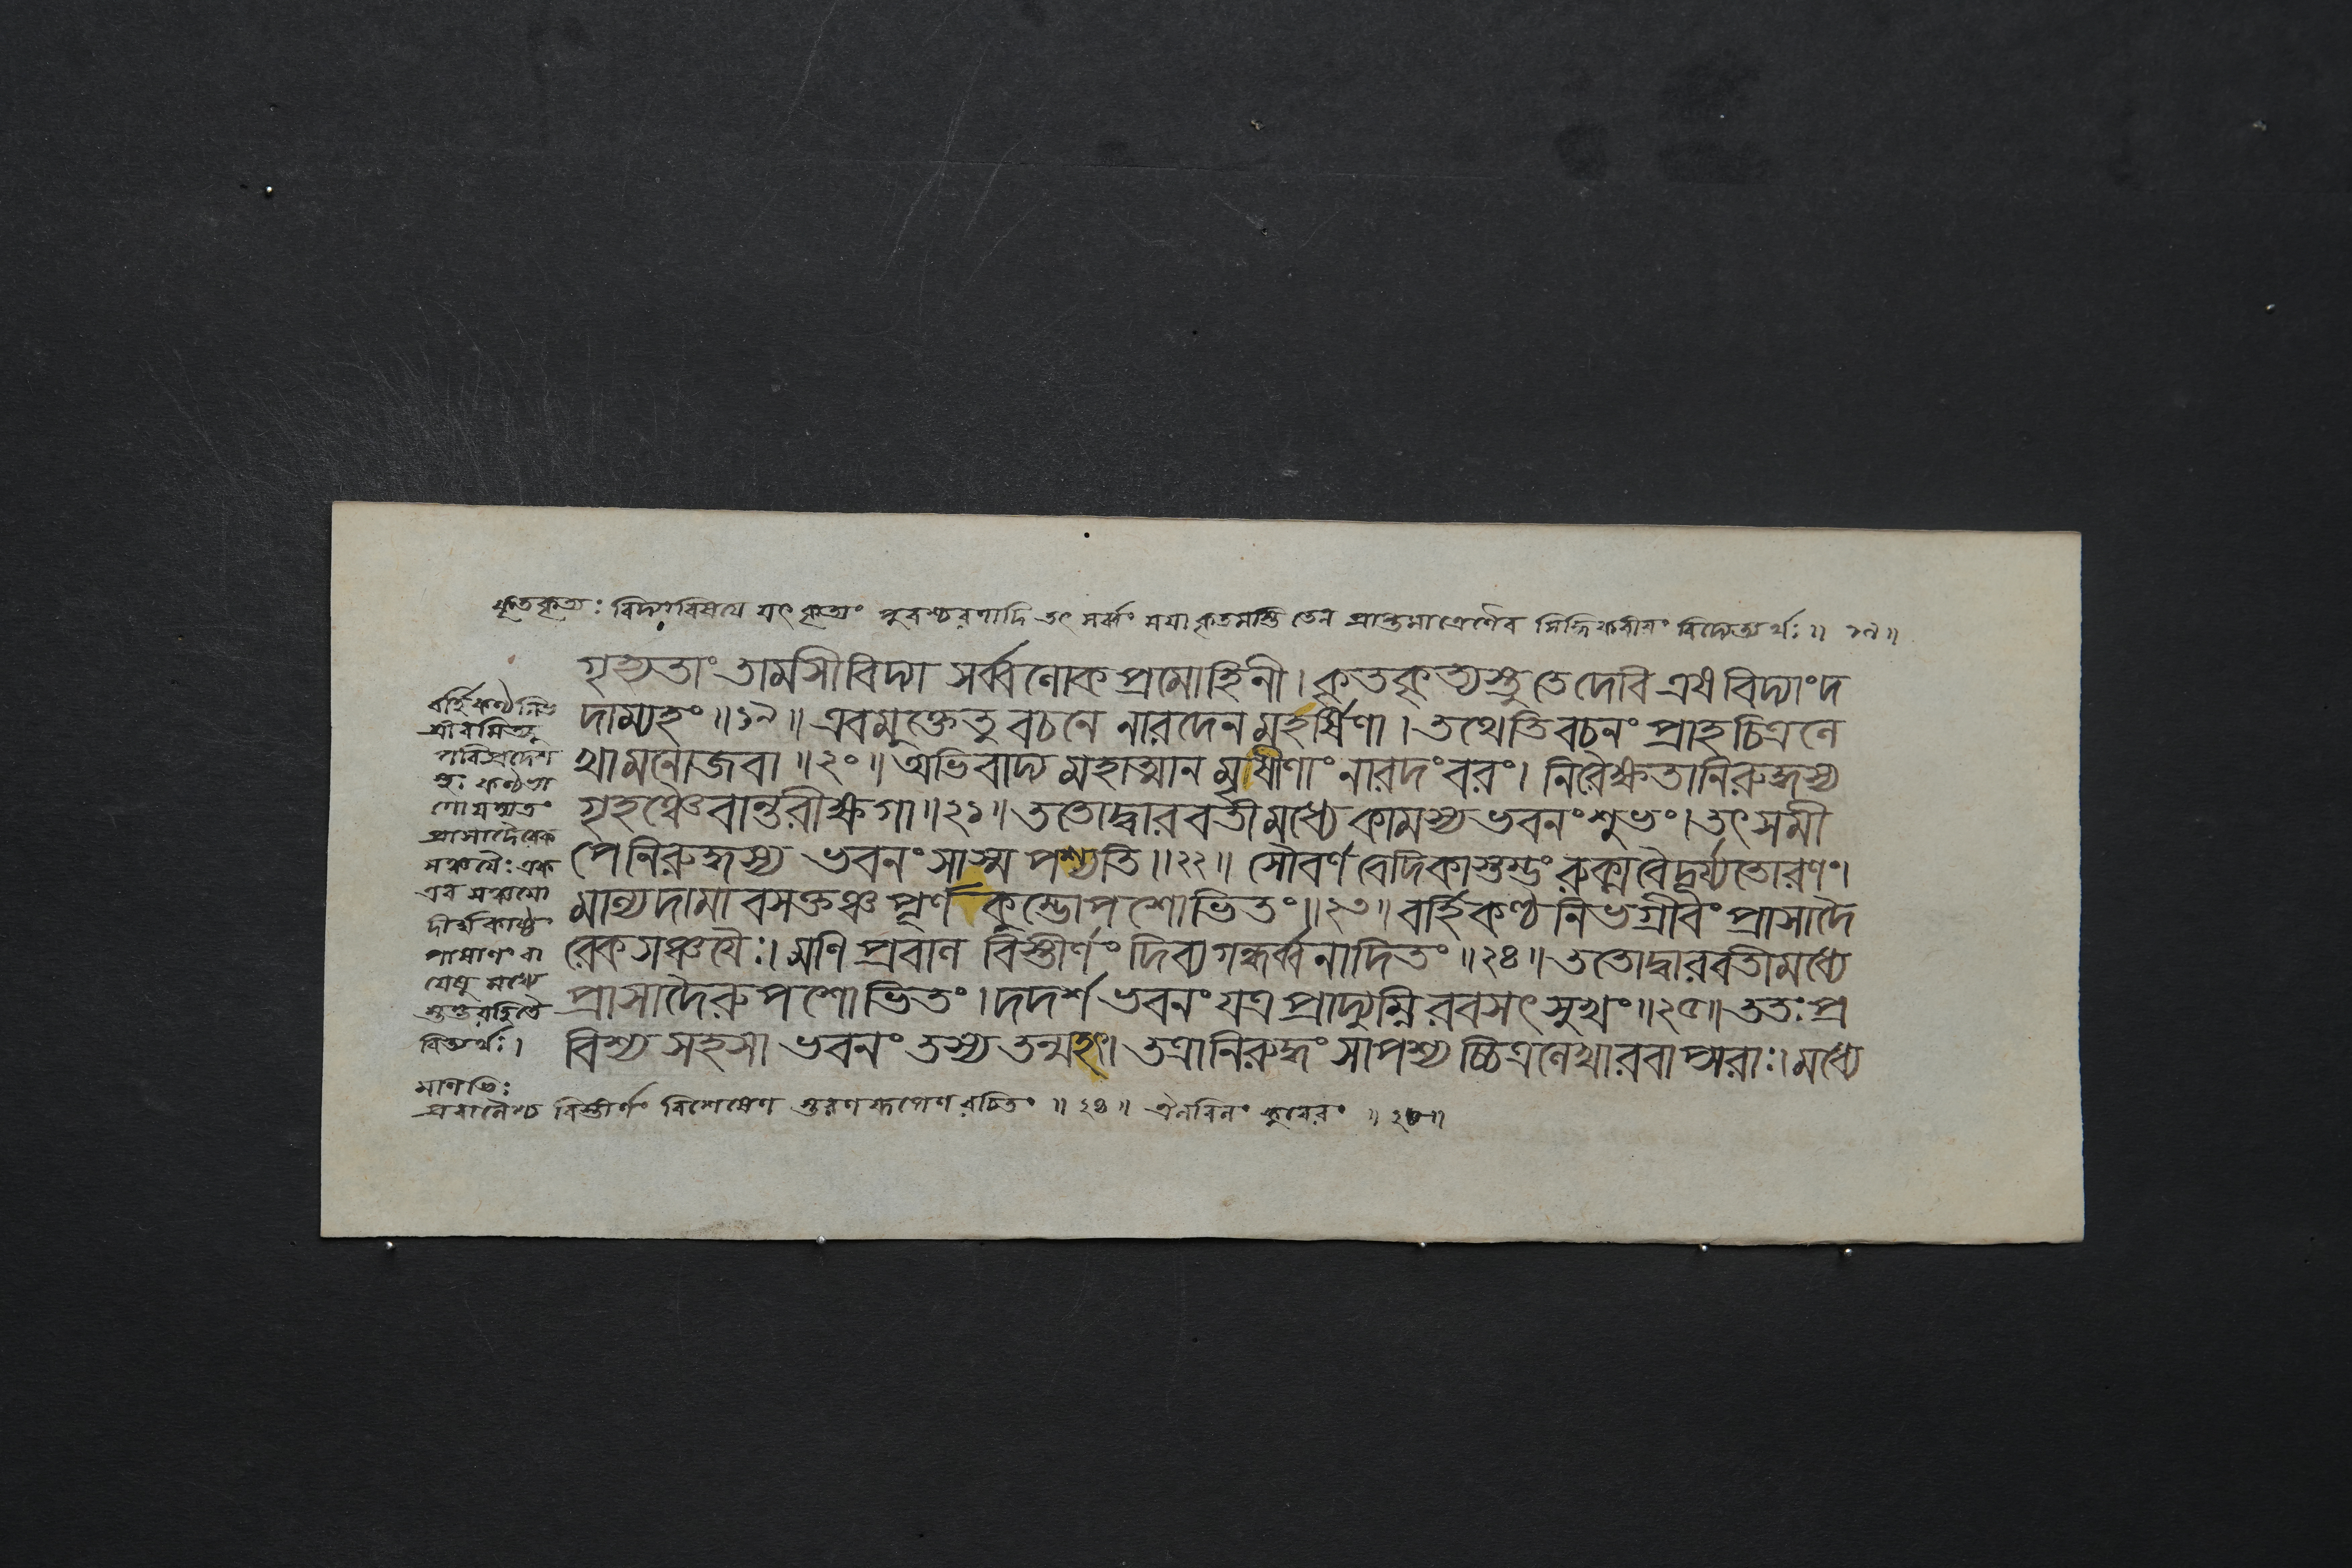 কৃতকৃত্যঃ বিদ্যাবিষয়ে যৎ কৃত্যং পুরশ্চরণাদি তৎ সর্ব্বং ময়া কৃতমস্তি তেন প্রাপ্তমাত্রেণৈব সিদ্ধিকরীয়ং বিদ্যেত্যর্থঃ ॥ ১৯ ॥
গৃহ্যতাং তামসীবিদ্যা সর্ব্বলোকপ্রমোহিনী । কৃতকৃত্যস্তু তে দেবি এষ বিদ্যাং দ
দাম্যহং ॥ ১৯ ॥ এবমুক্তে তু বচনে নারদেন মহর্ষিণা । তথেতি বচনং প্রাহ চিত্রলে
খা মনোজবা ॥ ২০ ॥ অভিবাদ্য মহাত্মানমৃষীণাং নারদং বরং । নিরৈক্ষতানিরুদ্ধস্য
গৃহঞ্চৈবান্তরীক্ষগা ॥ ২১ ॥ ততোদ্বারবতীমধ্যে কামস্য ভবনং শুভং । তৎ সমী
পেনিরুদ্ধস্য ভবনং সাস্ম পশ্যতি ॥ ২২ ॥ সৌবর্ণবেদিকাস্তম্ভং রুক্মবৈদূর্য্যতোরণং ।
মাল্যদামাবসক্তঞ্চ পূর্ণকুম্ভোপশোভিতং ॥ ২৩ ॥ বর্হিকণ্ঠনিভগ্রীবং প্রাসাদৈ
রেকসঞ্চয়ৈঃ । মণিপ্রবালবিস্তীর্ণং দিব্যগন্ধর্ব্বনাদিতং ॥ ২৪ ॥ ততোদ্বারবতীমধ্যে
প্রাসাদৈরুপশোভিতং । দদর্শ ভবনং যত্র প্রাদ্যুম্নিরবসৎ সুখং ॥ ২৫ ॥ ততঃ প্র
বিশ্য সহসা ভবনং তস্য তন্মহৎ । তত্রানিরুদ্ধং সাপশ্যচ্চিত্রলেখা বরাপ্সরাঃ । মধ্যে
বর্হিকণ্ঠনিভ
গ্রীবমিত্যু
পরিপ্রদেশ
প্রাসাদৈরেক
সঞ্চয়ৈঃ এক
এব সঞ্চয়ো
দীর্ঘকাষ্ঠ
পাষাণং বা
যেষু মধ্যে
স্তম্ভরহিতৈ
রিত্যর্থঃ ।
মণিভিঃ
প্রবালৈশ্চ বিস্তীর্ণং বিশেষেণ স্তরণরূপেণ রচিতং ॥ ২৪ ॥ ঐলবিলং কুবেরং ॥